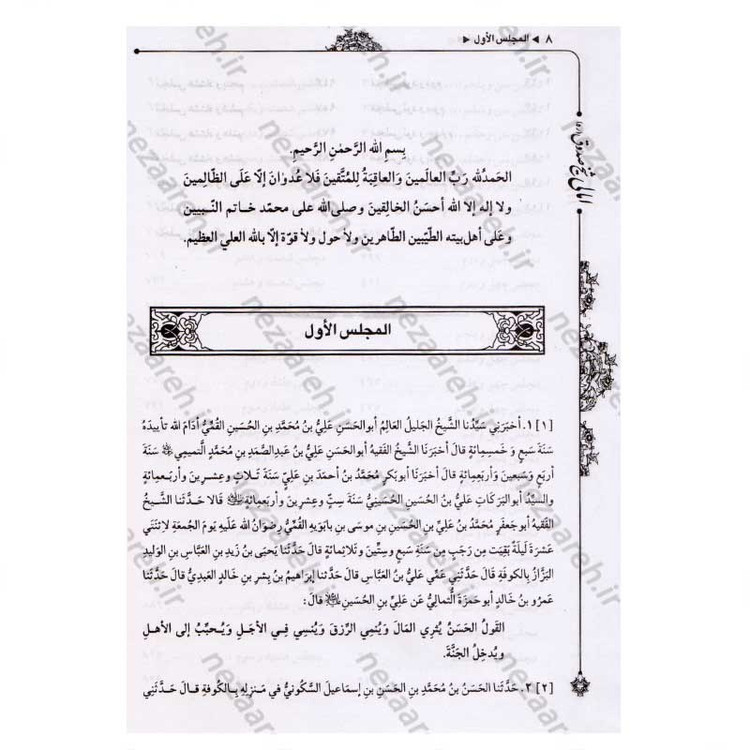 ٨ ◄ المجلس الأول ►
امالی شیخ صدوق (ره)
بِسمِ اللهِ الرَّحمٰنِ الرَّحیمِ.
الحَمدُلله رَبِّ العالَمینَ وَالعاقِبَةُ لِلمُتَّقینَ فَلا عُدوانَ إلّا عَلَی الظّالِمینَ
ولا إله إلا الله أحسَنُ الخالِقینَ وصلی‌الله علی محمّد خاتم النّبیین
وعَلی أهل‌بیته الطَّیِّبین الطّاهرین ولا حول ولا قوّة إلّا بالله العلي العظیم.
المجلس الأول
[١] ١. أخبَرَني سَیِّدُنا الشَّیخُ الجَلیلُ العالِمُ أبوالحَسَنِ عَلِيُّ بنُ مُحَمَّدِ بنِ الحُسَینِ القُمِّيُّ أدامَ الله تأییدَهُ
سَنَةَ سَبعٍ وَ خَمسِمِائةٍ قالَ أخبَرَنَا الشَّیخُ الفَقیهُ أبوالحَسَنِ عَلِيُّ بنُ عَبدِالصَّمَدِ بنِ مُحَمَّدٍ التَّمیمي سَنَةَ
أربَعٍ وَسَبعینَ وَأربَعِمِائةٍ قالَ أخبَرَنا أبوبَکرٍ مُحَمَّدُ بنُ أحمَدَ بنِ عَلِيٍّ سَنَةَ ثَلاثٍ وَعِشرینَ وَأربَعِمِائةٍ
والسَّیِّدُ أبوالبَرَکاتِ عَلِيُّ بنُ الحُسَینِ الحُسَینِيُّ سَنَةَ سِتٍّ وَعِشرینَ وأربَعمِائةٍ قالا حَدَّثَنَا الشَّیخُ
الفَقیهُ أبوجَعفَرٍ مُحَمَّدُ بنُ عَلِيِّ بنِ الحُسَینِ بنِ موسَی بنِ بابَوَیهِ القُمِّيُّ رِضوانُ الله عَلَیهِ یَومَ الجُمعَةِ لِاثنَتَي
عَشرَةَ لَیلَةً بَقِیَت مِن رَجَبٍ مِن سَنَةِ سَبعٍ وسِتّینَ وثَلاثِمائةٍ قالَ حَدَّثَنا یَحیَی بنُ زَیدِ بنِ العَبّاسِ بنِ الوَلیدِ
البَزّازُ بِالکوفَةِ قالَ حَدَّثَني عَمّي عَلِيُّ بنُ العَبّاسِ قالَ حَدَّثَنا إبراهیمُ بنُ بِشرِ بنِ خالِدٍ العَبدِيُّ قالَ حَدَّثَنا
عَمرُو بنُ خالِدٍ أبوحَمزَةَ الثُّمالِيُّ عَن عَلِيِّ بنِ الحُسَینِ قالَ:
القَولُ الحَسَنُ یُثرِي المَالَ وَیُنمِي الرِّزقَ وَیُنسِي فِي الأجَلِ وَیُحَبِّبُ إلَی الأهلِ
ویُدخِلُ الجَنَّةَ.
[٢] ٢. حَدَّثَنا الحَسَنُ بنُ مُحَمَّدِ بنِ الحَسَنِ بنِ إسماعیلَ السَّکونِيُّ في مَنزِلِهِ بِالکوفَةِ قالَ حَدَّثَنِي
nezaareh.ir